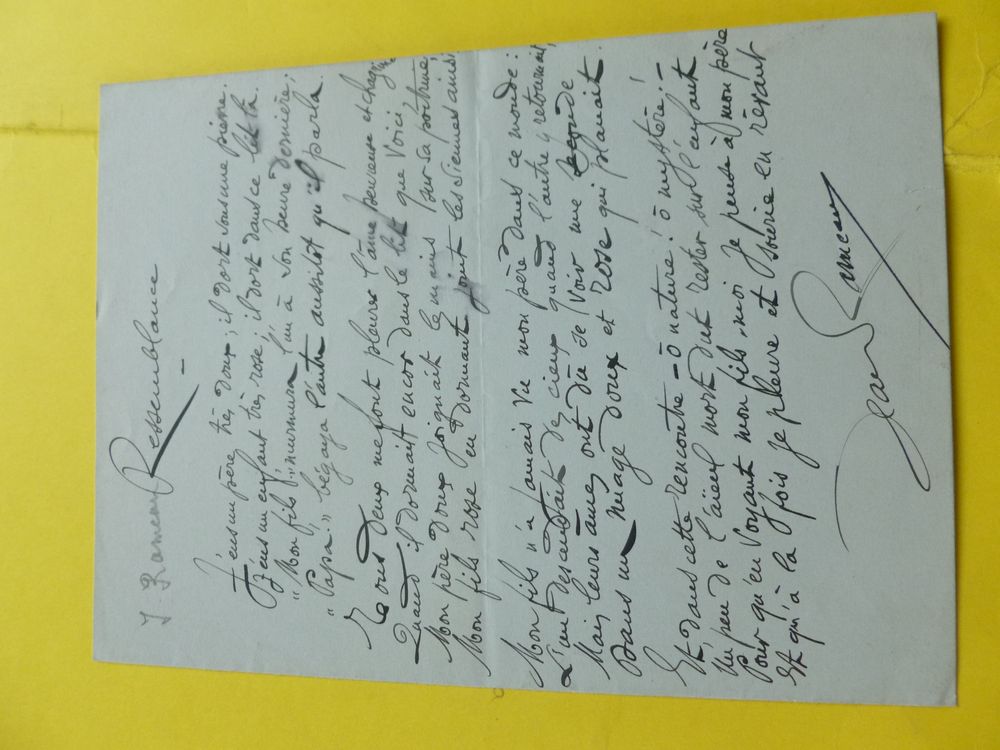 J. Rameau
Ressemblance
J'eus un père très doux ; il dort sous une pierre.
J'eus un enfant très rose ; il dort dans ce lit là.
"Mon fils" murmura l'un à son heure dernière ;
"Papa" bégaya l'autre aussitôt qu'il parla
Tous deux me font pleurer l'âme peureuse et chagrine
Quand il dormait encor dans le lit que voici
Mon père doux joignait les mains sur sa poitrine ;
Mon fils rose en dormant joint les siennes ainsi
Mon fils n'a jamais vu mon père dans ce monde :
L'un descendait des cieux quand l'autre y retournait,
Mais leurs âmes ont dû se voir une seconde
Dans un nuage doux et rose qui planait.
Et dans cette rencontre – ô nature ! ô mystère ! –
Un peu de l'aïeul mort dut rester sur l'enfant
Pour qu'en voyant mon fils, moi je pense à mon père
Et qu'à la fois je pleure et sourie en rêvant
Jean Rameau